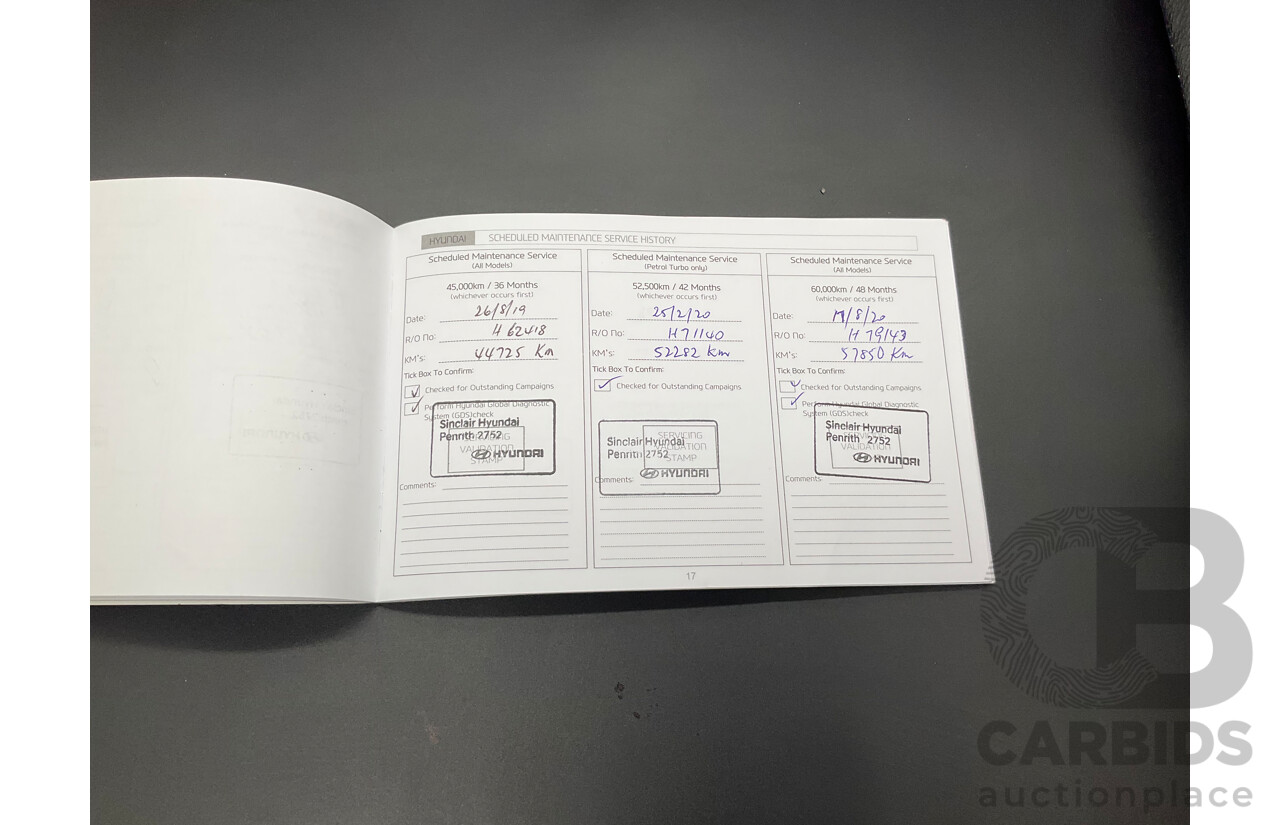 HYUNDAI SCHEDULED MAINTENANCE SERVICE HISTORY
Scheduled Maintenance Service
(All Models)
45,000km / 36 Months
(whichever occurs first)
Date: 26/8/19
R/O No: H 62418
KM's: 44725 Km
Tick Box To Confirm:
Checked for Outstanding Campaigns
Perform Hyundai Global Diagnostic
System (GDS)check
Sinclair Hyundai
Penrith 2752
SERVICING
VALIDATION
STAMP
HYUNDAI
Comments:
Scheduled Maintenance Service
(Petrol Turbo only)
52,500km / 42 Months
(whichever occurs first)
Date: 25/2/20
R/O No: H71140
KM's: 52282 km
Tick Box To Confirm:
Checked for Outstanding Campaigns
Sinclair Hyundai
Penrith 2752
SERVICING
VALIDATION
STAMP
HYUNDAI
Comments:
Scheduled Maintenance Service
(All Models)
60,000km / 48 Months
(whichever occurs first)
Date: /8/20
R/O No: H 79143
KM's: 57850 Km
Tick Box To Confirm:
Checked for Outstanding Campaigns
Perform Hyundai Global Diagnostic
System (GDS)check
Sinclair Hyundai
Penrith 2752
VALIDATION
HYUNDAI
Comments
17
CB
CARBIDS
auctionplace